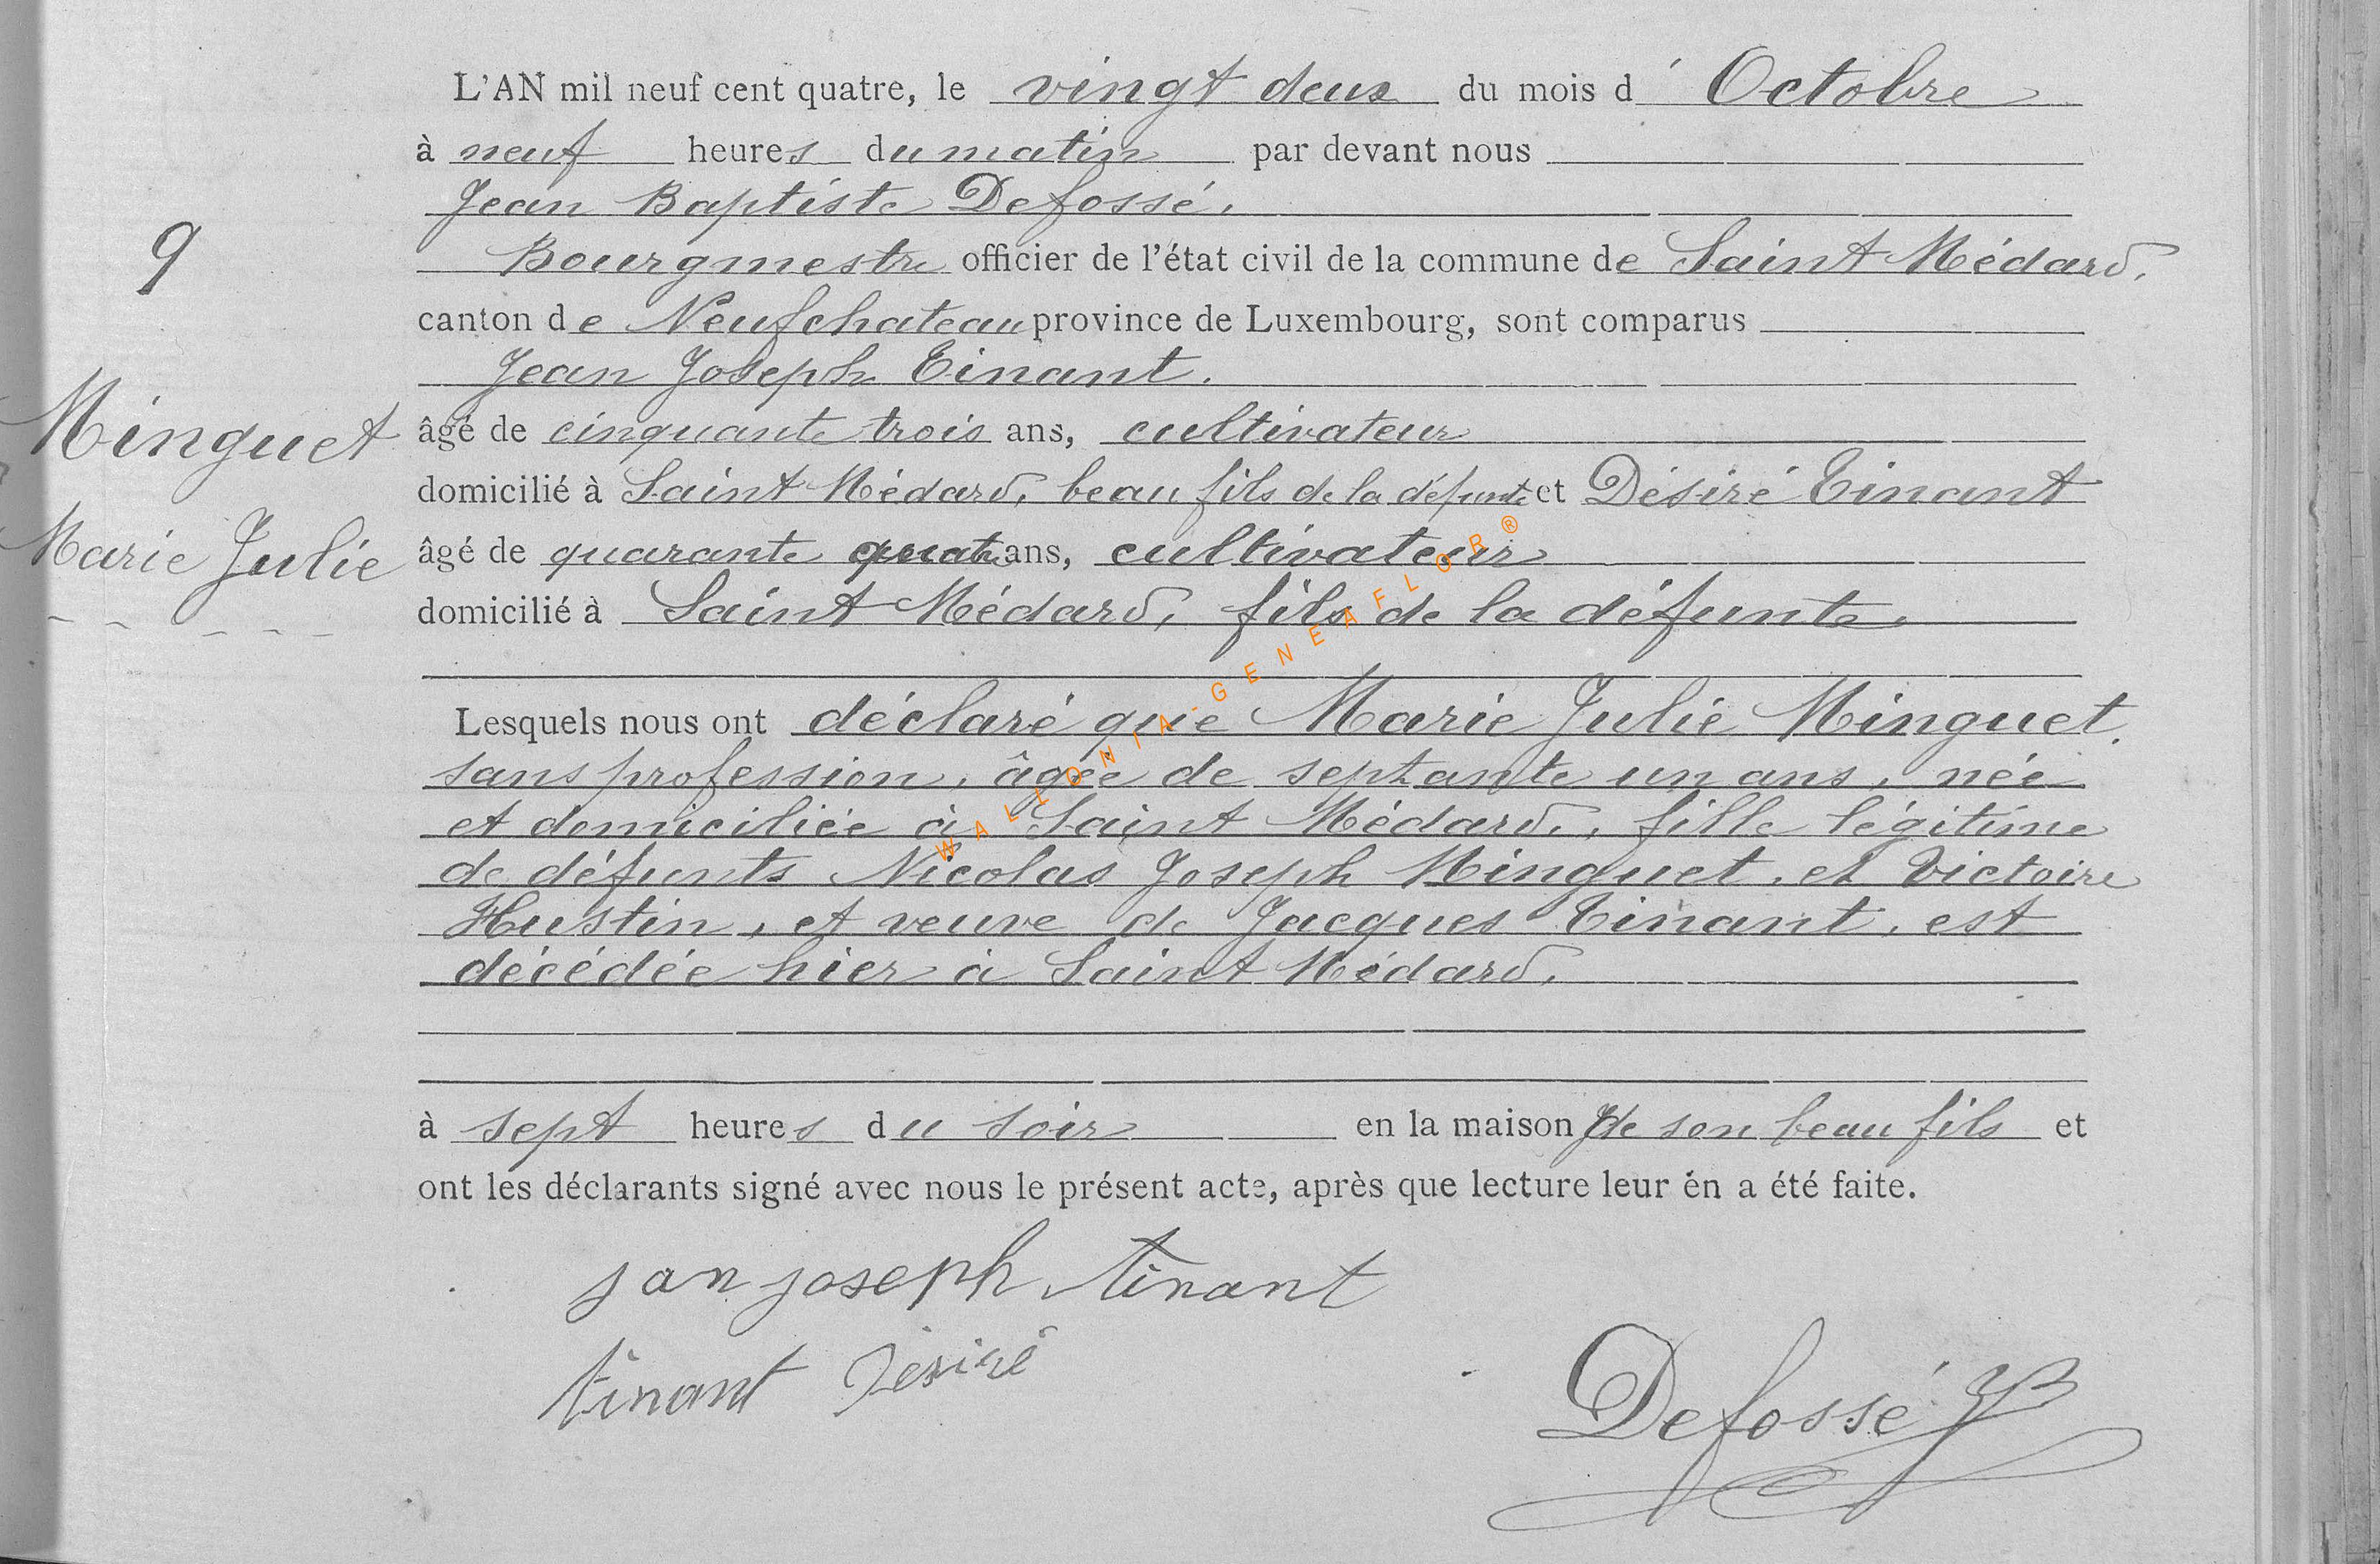 L'AN mil neuf cent quatre, le vingt deux du mois d' Octobre
à neuf heures du matin par devant nous
Jean Baptiste Defossé,
9
Bourgmestre officier de l'état civil de la commune de Saint Médard,
canton de Neufchateau province de Luxembourg, sont comparus
Jean Joseph Tinant.
Minguet
âgé de cinquante trois ans, cultivateur
domicilié à Saint Médard, beau fils de la défunte et Désiré Tinant
Marie Julie
âgé de quarante quatre ans, cultivateur
domicilié à Saint Médard, fils de la défunte.
WALLONIA-GENEAFLOR®
Lesquels nous ont déclaré que Marie Julie Minguet,
sans profession, âgée de septante un ans, née
et domiciliée à Saint Médard, fille légitime
de défunts Nicolas Joseph Minguet, et Victoire
Hustin, et veuve de Jacques Tinant, est
décédée hier à Saint Médard,
à sept heures du soir en la maison de son beau fils et
ont les déclarants signé avec nous le présent acte, après que lecture leur en a été faite.
jan joseph tinant
tinant Désiré
Defossé JB